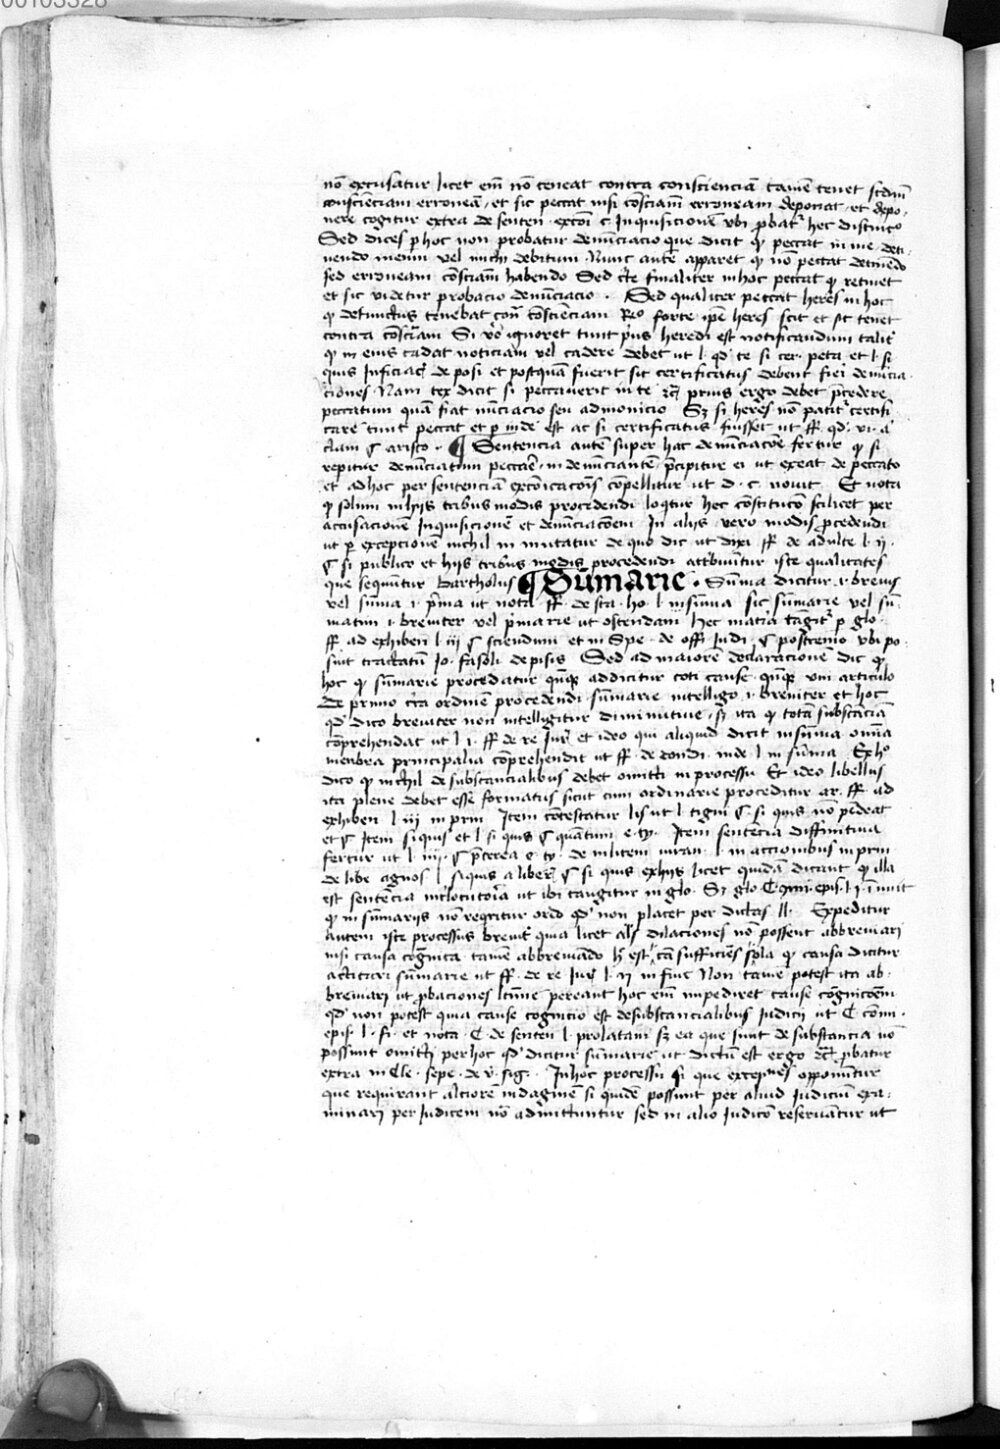 00103328
nō excusatur licet em̄ nō teneat contra conscienciā tamē tenet scdm̄
conscienciam erroneā · et sic peccat nisi cōsciam̄ erroneam deponat · et depo-
nere cogitur extra de senten · excōi c. Inquisicionē vbi ꝓbat᷑ hec distinctō
Sed dices ꝑ hoc non probatur denūciacio que dicit ꝙ peccat in me deti-
nendo meum vel michi debitum Nunc autē apparet ꝙ nō peccat detinēdo
sed erroneam cōsciam̄ habendo Sed cte finaliter in hoc peccat ꝙ retinet
et sic videtur probacio denūciacio · Sed qualiter peccat heres in hoc
ꝙ defunctus tenebat conͣ cōscienciam Rͦ forte ipē heres scit et sic tenet
contra cōsciam̄ Si vͦ ignoret tunc pͥus heredi est notificandum talit᷑
ꝙ in eius cadat noticiam vel cadere debet ut l. qͩ te si cer. peta et l. si
quis Inficiat᷑ de posi et postquā fuerit sic certificatus debent fieri denūcia-
ciones Nam tex dicit si peccauerit in te ⁊c̄ prius ergo debet p̄cedere
peccatum quā fiat nūciacio seu admonicio Sꝫ si heres nō patit᷑ certifi
care tunc peccat et ꝑ inde est ac si certificatus fuisset ut ff. qͩ. vi. a
clam ¶ aristo · ¶ Sentencia autē super hac denūciacōe fertur ꝙ si
repitur denūciatum peccare in denūciantē p̄cipitur ei ut exeat de peccato
et ad hoc per sentenciā excōicacōis cōpellitur ut d. c. nouit · Et nota
ꝙ solum in hijs tribus modis procedendi loqtur hec cōstitucō scilicet per
accusacionē Inquisicionē et denūciacōem In alijs vero modis ꝓcedendi
ut ꝑ excepcionē nichil in mutatur de quo dic ut dixi ff. de adulte l. ij.
¶ si publico et hijs tribus modis procedendi attribuūtur iste qualitates
que sequūtur Bartholus ¶ Sūmarie · Sūma dicitur .i. breuis
vel sūma .i. p̄ma ut nota ff. de sta. ho. l. in sūma sic sūmarie vel sū-
matim .i. breuiter vel p̄marie ut ostendam hec matͥa tāgit᷑ ꝑ glo.
ff. ad exhiben l. iij ¶ sciendum et in Spe. de offi Iudi. ¶ postremo vbi po-
sunt tractatū Io. fasoli de pisis Sed ad maiorē declaracionē dic ꝙ
hoc ꝙ sūmarie procedatur qn̄qꝫ addicitur toti cause qn̄qꝫ vni articulo
De primo cͥca ordinē procedendi sūmarie intelligo .i. breuiter et hoc
qͩ dico breuiter non intelligitur diminutiue · sꝫ ita ꝙ totā substāciā
cōprehendat ut l. j. ff. de re Iur᷑ et ideo qui aliquid dicit in sūma omīa
menbra principalia cōprehendit ut ff. de condi. inde l. in sūma Ex hͦ
dico ꝙ nichil de substancialibus debet omitti in processu Et ideo libellus
ita plene debet esse formatus sicut cum ordinarie proceditur ar. ff. ad
exhiben l. iij in prin Item cōtestatur lis ut l. tigni ¶ si quis nō pēdeat
et ¶ Item si quis et l. si quis ¶ quantum e. ty. Item sentēcia diffinitiua
fertur ut l. iij. ¶ p̄terea e. ty. de militem iuran. l. in accionibus in prin
de libe agnos l. si quis a liber᷑ ¶ si quis ex hijs licet quidā dicant ꝙ illa
est sentēcia inꝉocutoria ut ibi tangitur in glo. Sꝫ glo C. qm̄. epis. l. j. inuit
ꝙ in sūmarijs nō reqritur ordo qͩ non placet per dictas ll. Expeditur
autem iste processus breuiͭ quia licet als dilaciones nō possent abbreuiari
nisi causa cognita tamē abbreuiādo hͥ est cā sufficiēs sola ꝙ causa dicitur
actitari sūmarie ut ff. de re Iur᷑ l. ij in fine Non tamē potest ita ab-
breuiari ut ꝓbaciones ltīme pereant hoc em̄ impediret cause cōgnicōem
qͩ non potest quia cause cognicio est de substancialibus Iudicij ut C. com̄.
epis. l. fi. et nota C. de senten l. prolatam sꝫ ea que sunt de substancia nō
possunt omitti per hoc qͩ dicitur sūmarie ut dictū est ergo ⁊c̄ ꝓbatur
extra in Cle. sepe. de v. sig. · In hoc processu si que excepcōes opponūtur
que requirant alciorē indaginē si quidē possunt per aliud Iudiciū exa-
minari per Iudicem nō admittuntur sed in alio Iudicō reseruātur ut